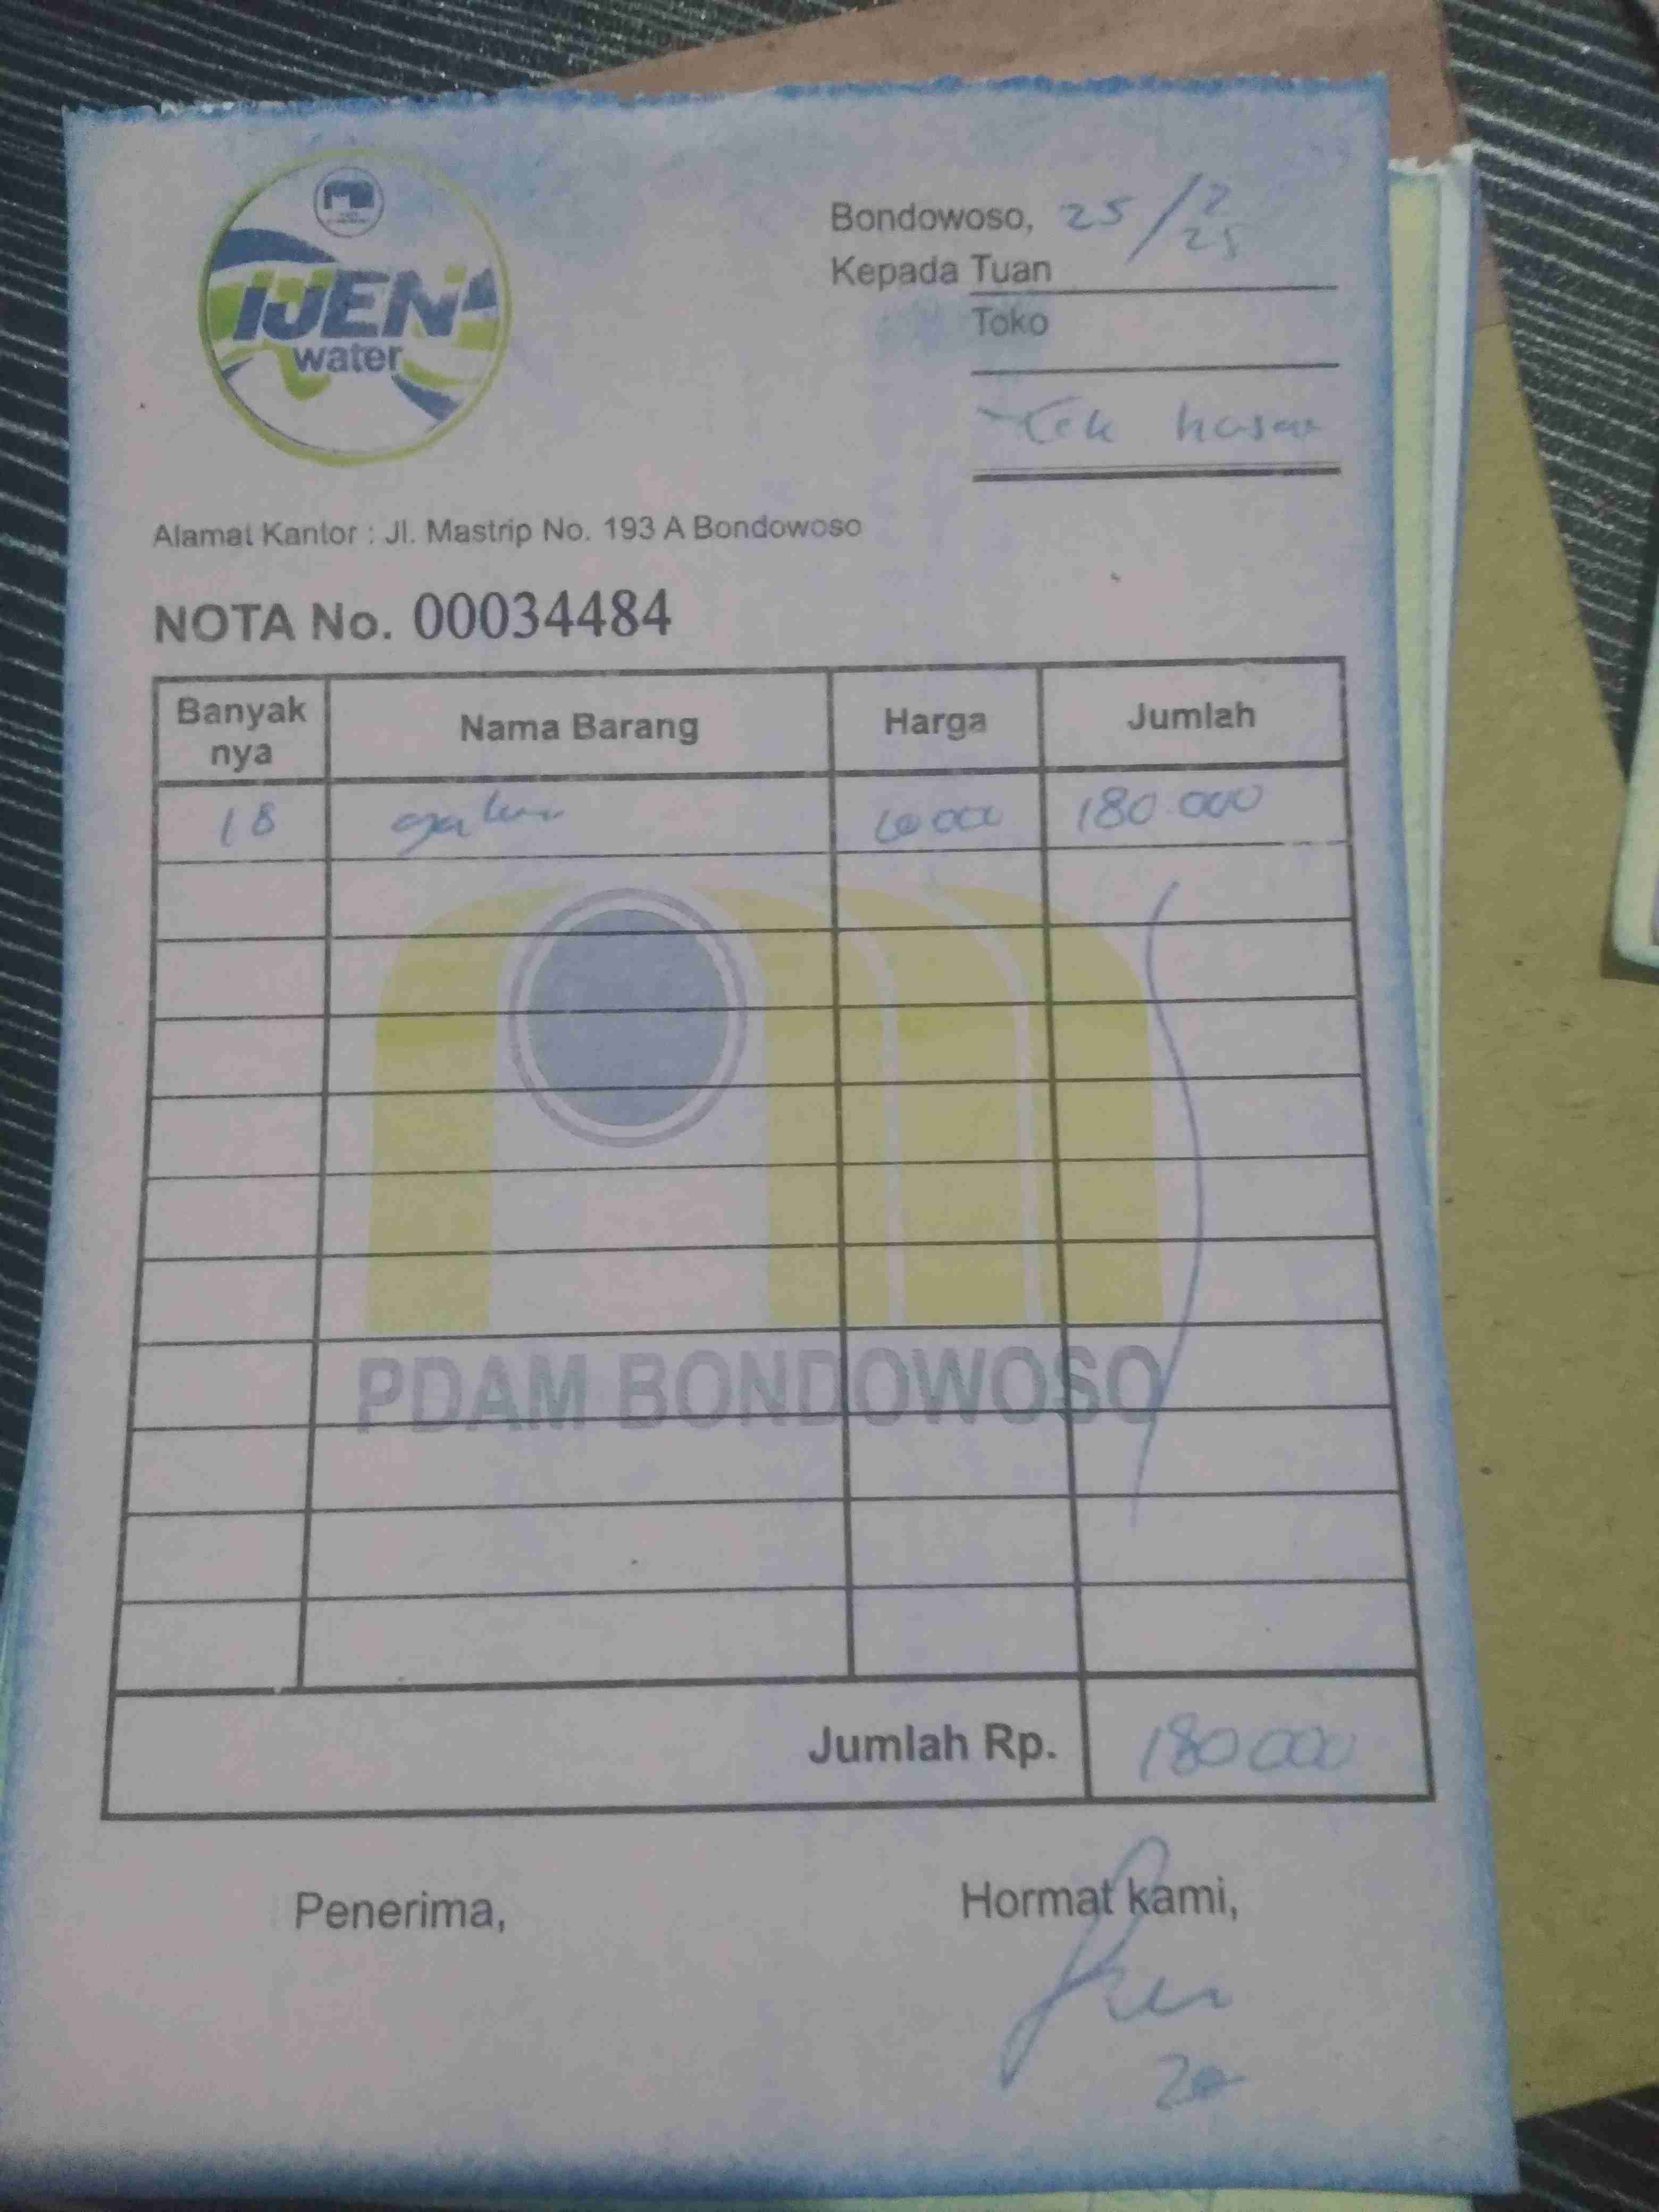 IJEN
water
Bondowoso, 25/2
25
Kepada Tuan
Toko
Alamat Kantor : Jl. Mastrip No. 193 A Bondowoso
NOTA No. 00034484
Banyak nya Nama Barang Harga Jumlah
18 galon 10000 180.000
PDAM BONDOWOSO
Jumlah Rp. 180000
Penerima, Hormat kami,